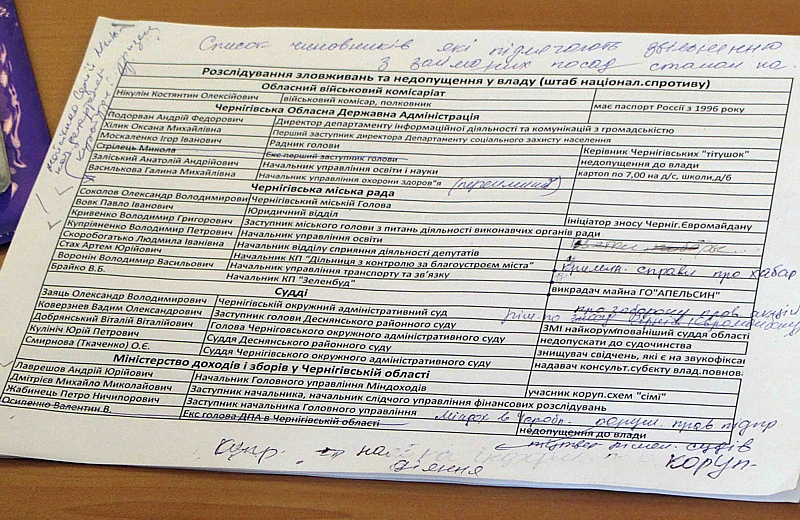 Список чиновників які підлягають звільненню
з займаних посад станом на
Розслідування зловживань та недопущення у владу (штаб національ.спротиву)
Обласний військовий комісаріат
Нікулін Костянтин Олексійович військовий комісар, полковник має паспорт России з 1996 року
Чернігівська Обласна Державна Адміністрація
Подорван Андрій Федорович Директор департаменту інформаційної діяльності та комунікацій з громадськістю
Хілик Оксана Михайлівна Перший заступник директора Департаменту социального захисту населення
Москаленко Ігор Іванович Радник голови Керівник Чернігівських "тітушок"
Стрілець Микола Екс перший заступник голови недопущення до влади
Заліський Анатолій Андрійович Начальник управління освіти і науки картоп по 7,00 на д/с, школи,д/б
Василькова Галина Михайлівна Начальник управління охорони здоров'я
Чернігівська міська рада
Соколов Олександр Володимирови Чернігівський міський Голова
Вовк Павло Іванович Юридичний відділ
Кривенко Володимир Григорович Заступник міського голови з питань діяльності виконавчих органів ради Ініціатор зносу Черніг.Євромайдану
Купріяненко Володимир Петрович Начальник управління освіти
Скоробогатько Людмила Іванівна Начальник відділу сприяння діяльності депутатів
Стах Артем Юрійович Начальник КП "Дільниця з контролю за благоустроєм міста" справи про хабар
Воронін Володимир Васильович Начальник управління транспорту та зв'язку
Брайко В.Б. Начальник КП "Зеленбуд" викрадач майна ГО"АПЕЛЬСИН"
Судді
Заяць Олександр Володимирович Чернігівський окружний адміністративний суд про заборону прав. акцій
Коверзнев Вадим Олександрович Заступник голови Деснянського районного суду
Добрянський Віталій Віталійович Голова Чернговського окружного адміністративного суду ЗМІ найкорумпованіший суддя області
Кулініч Юрій Петрович Суддя Деснянського районного суду недопускати до судочинства
Смирнова (Ткаченко) О.Є. Суддя Чернігівського окружного адміністративного суду знищувач свідчень, які є на звукофіксац
надавач консульт.субєкту влад.повнова
Міністерство доходів і зборів у Чернігівській області
Лаврешов Андрій Юрійович Начальник Головного управління Міндоходів
Дмітрієв Михайло Миколайович Заступник начальника, начальник слідчого управління фінансових розслідувань учасник коруп.схем "сімї"
Жабинець Петро Ничипорович Заступник начальника Головного управління
Осипенко Валентин В. Екс голова ДПА в Чернігівській області недопущення до влади
діяння
коруп.